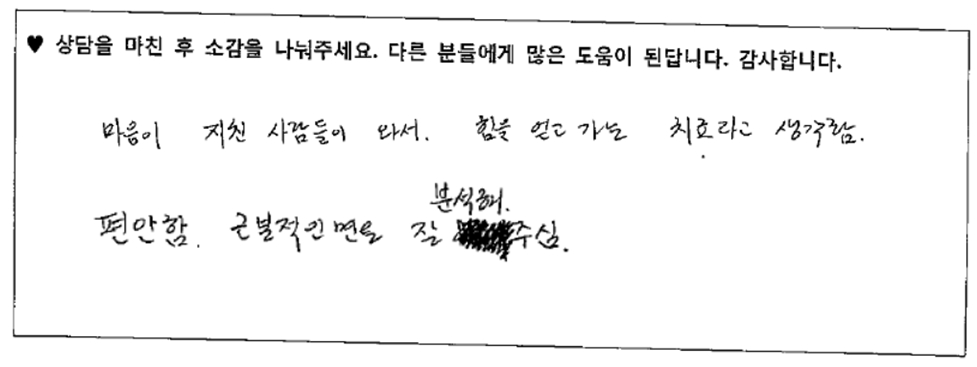 ♥ 상담을 마친 후 소감을 나눠주세요. 다른 분들에게 많은 도움이 된답니다. 감사합니다.
마음이 지친 사람들이 와서. 힘을 얻고 가는 치료라고 생각함.
분석해.
편안함. 근본적인면을 잘 주심.